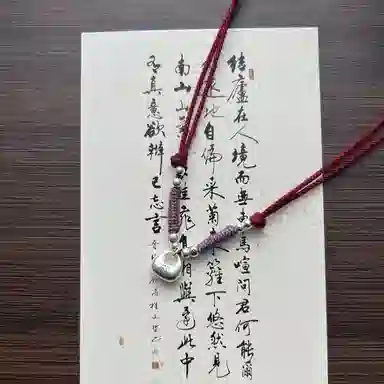 結廬在人境而無車馬喧問君何能爾
遠地自偏采菊籬下悠然見
南山山佳飛鳥相與還此中
有真意欲辨已忘言